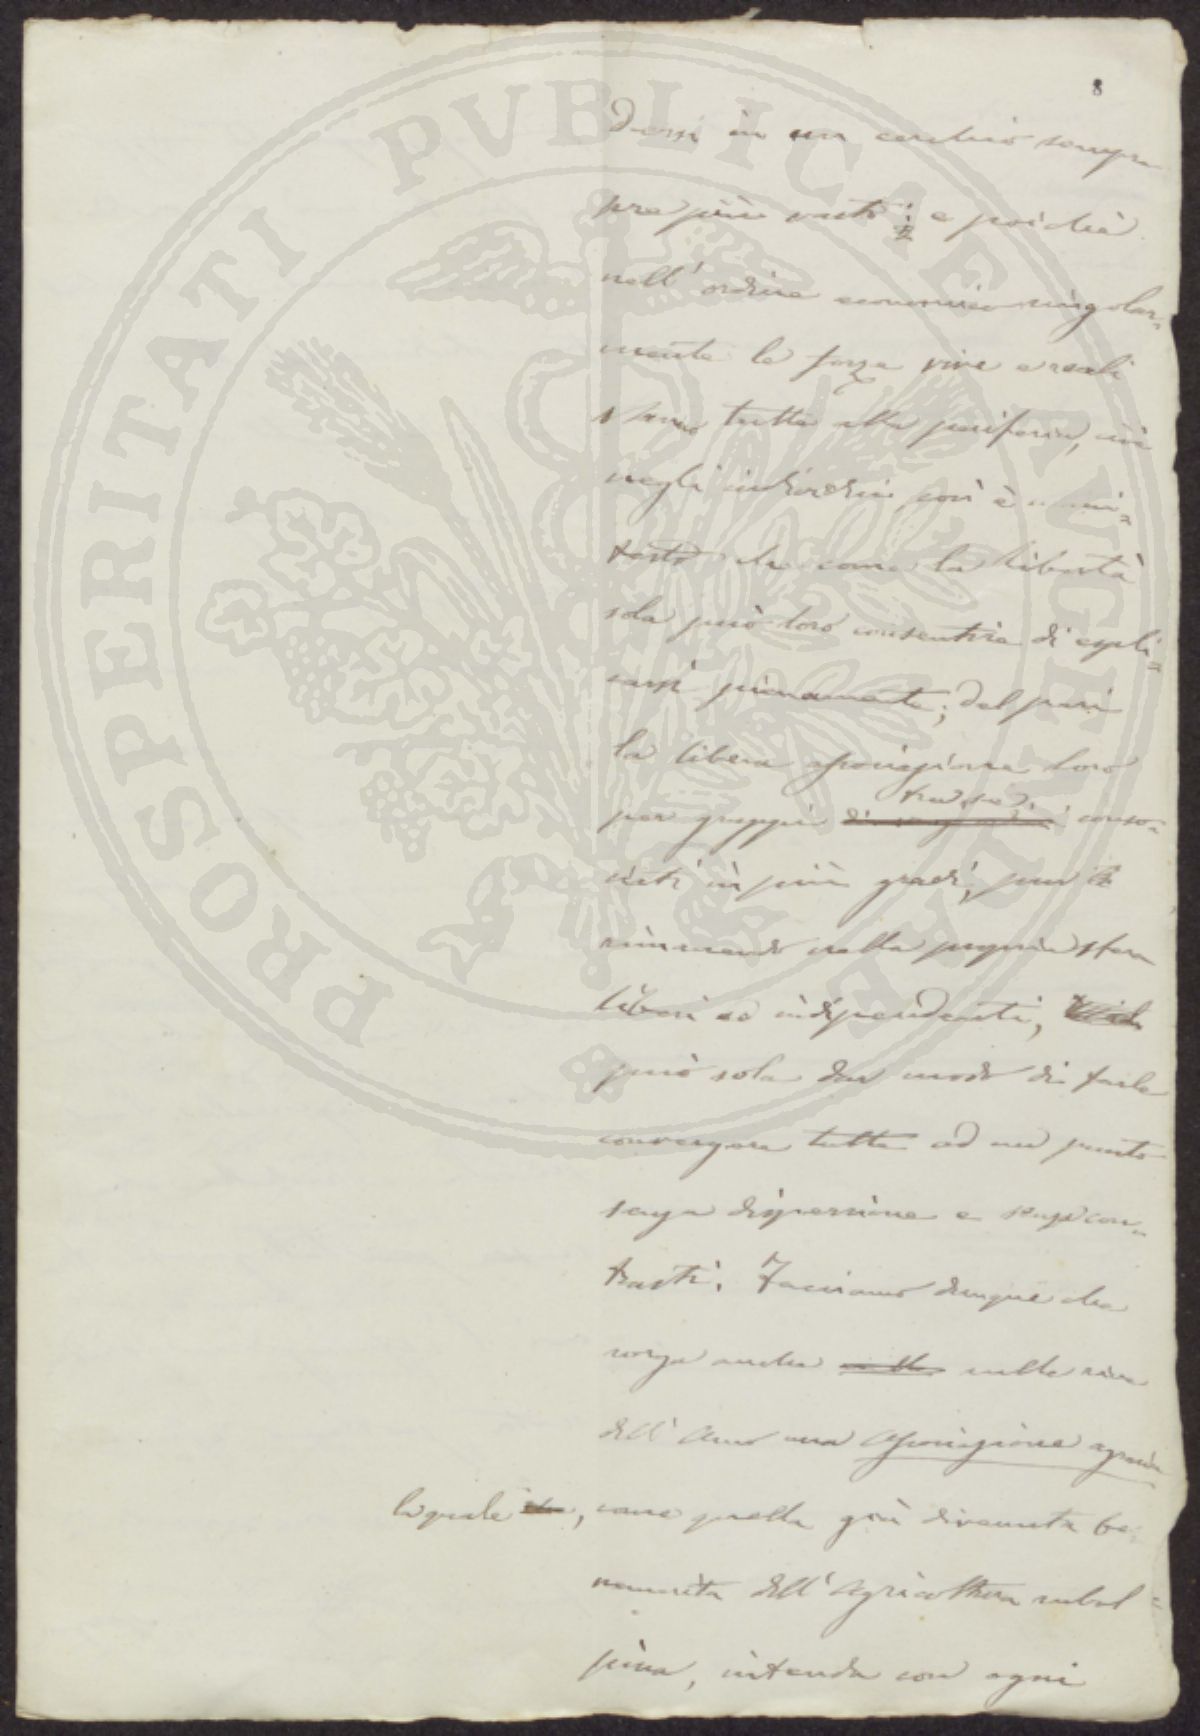 8
dersi in un cerchio sempre
pre più vasto; e poichè
nell'ordine economico singolar-
mente le forze vive e reali
sono tutte alla periferia, cioè
negli individui, così è mani-
festo che come la libertà
sola può loro consentire di espli-
carsi pienamente; del pari
la libera associazione loro
tra se
per gruppi conso-
ciati in più gradi, pur
rimanendo nella propria sfera
liberi ed indipendenti,
può sola dar modo di farle
convergere tutte ad un punto
senza dispersione e senza con-
trasti. Facciamo dunque che
sorga anche sulle rive
dell'Arno una Associazione agraria
la quale, come quella già divenuta be-
nemerita dell'Agricoltura subal-
pina, intenda con ogni
PROSPERITATI PVBLICAE AVGENDAE